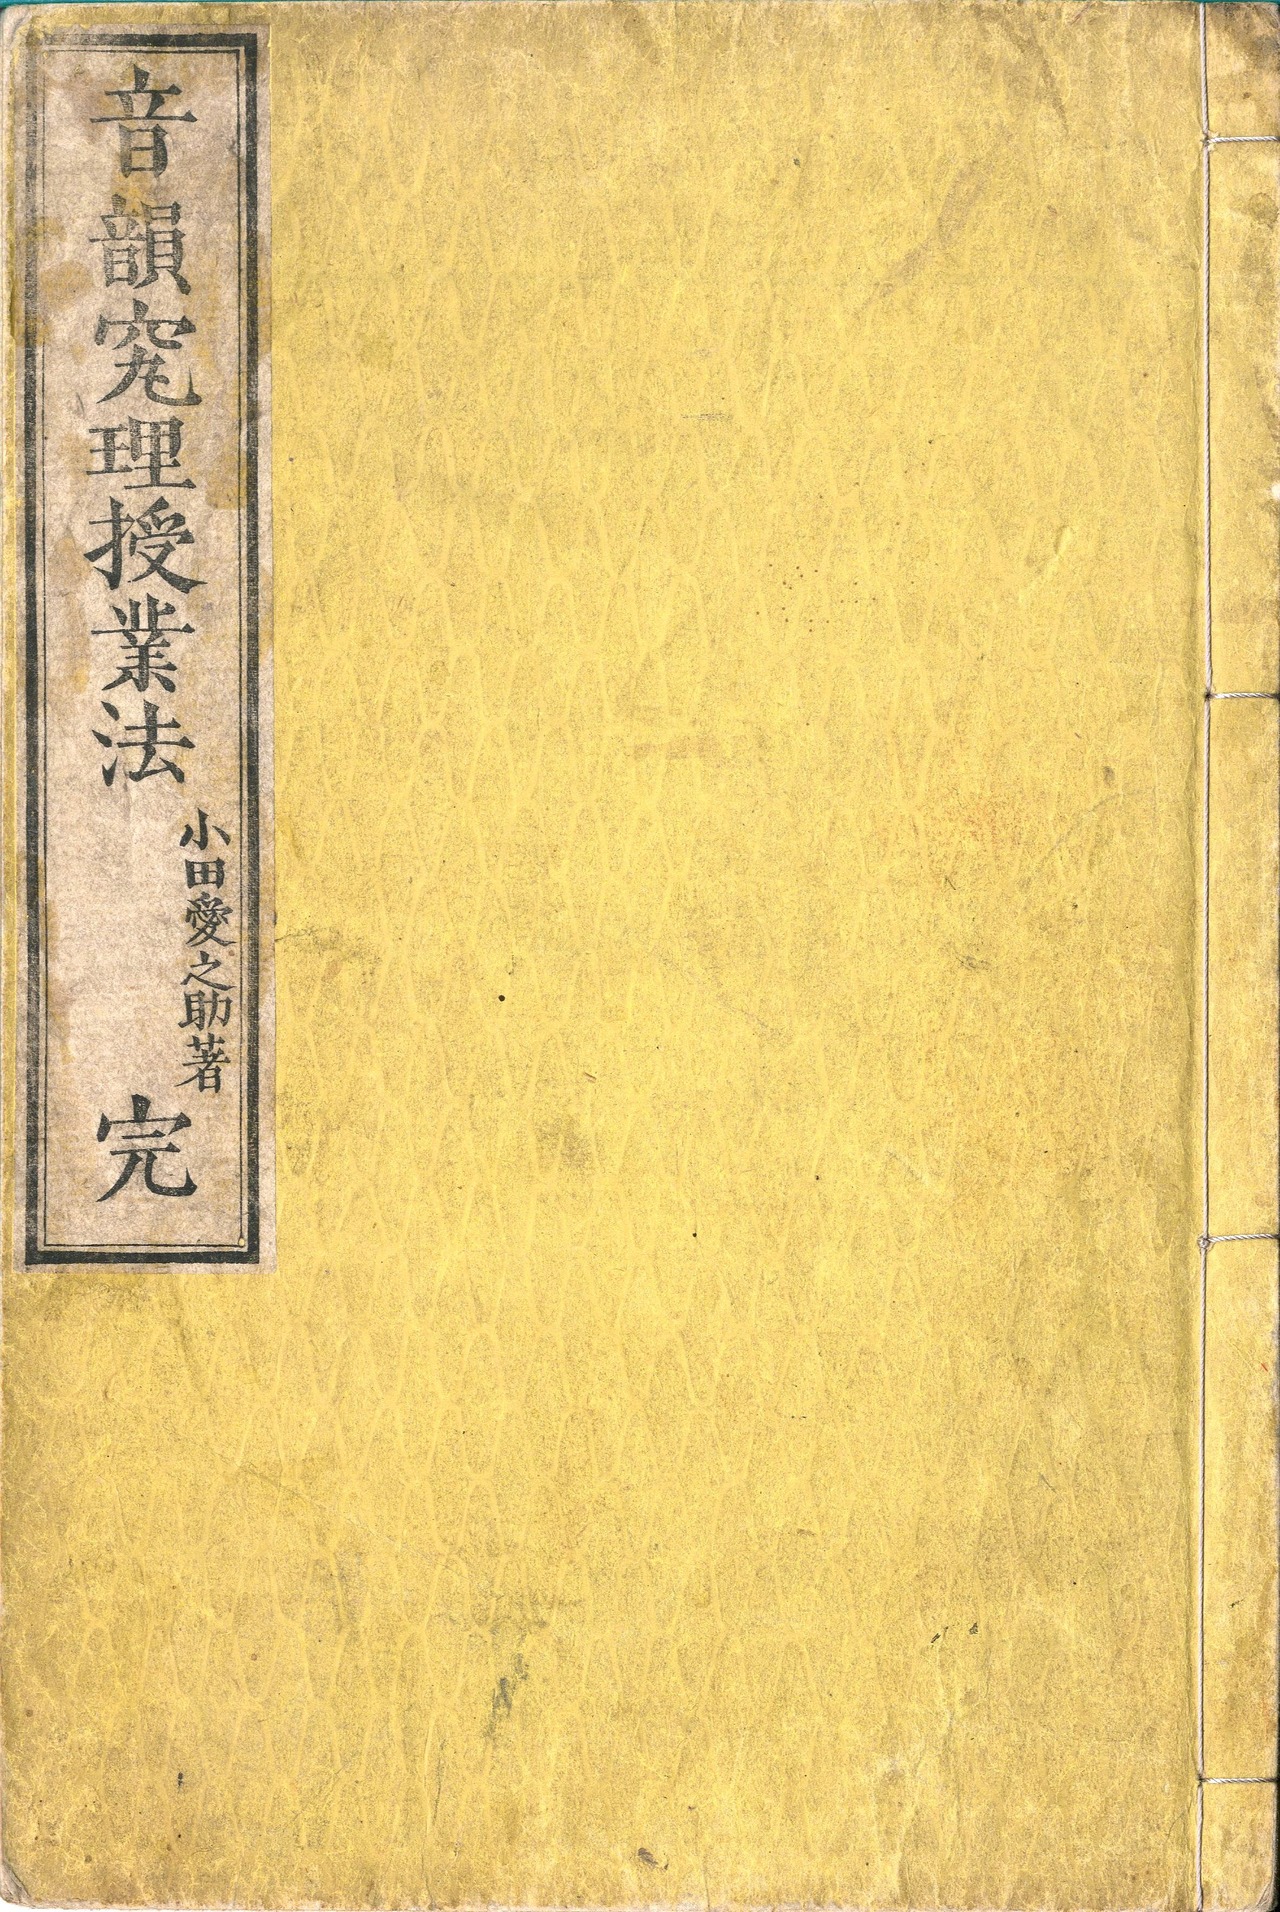 音韻究理授業法
小田愛之助著
完